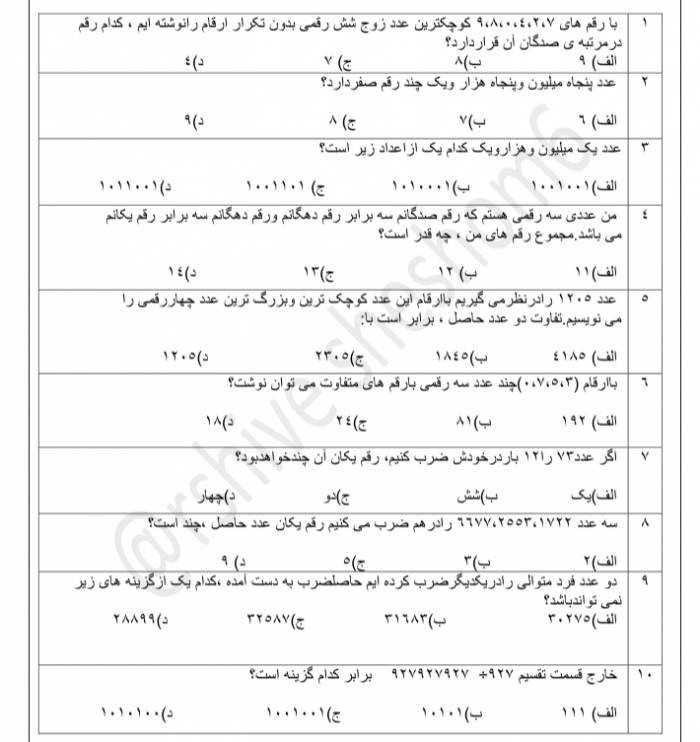 ۱ با رقم های ۹،۸،۰،٤،۲،۷ کوچکترین عدد زوج شش رقمی بدون تکرار ارقام رانوشته ایم ، کدام رقم
درمرتبه ی صدگان آن قراردارد؟
الف) ۹ ب)۸ ج) ۷ د)٤
۲ عدد پنجاه میلیون وپنجاه هزار ویک چند رقم صفردارد؟
الف) ٦ ب)۷ ج) ۸ د)۹
۳ عدد یک میلیون وهزارویک کدام یک ازاعداد زیر است؟
الف)۱۰۰۱۰۰۱ ب)۱۰۱۰۰۰۱ ج) ۱۰۰۱۱۰۱ د)۱۰۱۱۰۰۱
٤ من عددی سه رقمی هستم که رقم صدگانم سه برابر رقم دهگانم ورقم دهگانم سه برابر رقم یکانم
می باشد.مجموع رقم های من ، چه قدر است؟
الف)۱۱ ب) ۱۲ ج)۱۳ د)۱٤
۵ عدد ۱۲۰۵ رادرنظرمی گیریم باارقام این عدد کوچک ترین وبزرگ ترین عدد چهاررقمی را
می نویسیم.تفاوت دو عدد حاصل ، برابر است با:
الف) ٤۱۸۵ ب)۱۸٤۵ ج)۲۳۰۵ د)۱۲۰۵
٦ باارقام (۰،۷،۵،۳)چند عدد سه رقمی بارقم های متفاوت می توان نوشت؟
الف) ۱۹۲ ب)۸۱ ج)۲٤ د)۱۸
۷ اگر عدد۷۳ را۱۲ باردرخودش ضرب کنیم، رقم یکان آن چندخواهدبود؟
الف)یک ب)شش ج)دو د)چهار
۸ سه عدد ۶۶۷۷،۲۵۵۳،۱۷۲۲ رادرهم ضرب می کنیم رقم یکان عدد حاصل ،چند است؟
الف)۲ ب)۳ ج)۵ د) ۹
۹ دو عدد فرد متوالی رادریکدیگرضرب کرده ایم حاصلضرب به دست آمده ،کدام یک ازگزینه های زیر
نمی تواندباشد؟
الف)۳۰۲۷۵ ب)۳۱٦۸۳ ج)۳۲۵۸۷ د)۲۸۸۹۹
۱۰ خارج قسمت تقسیم ۹۲۷÷ ۹۲۷۹۲۷۹۲۷ برابر کدام گزینه است؟
الف) ۱۱۱ ب)۱۰۱۰۱ ج)۱۰۰۱۰۰۱ د)۱۰۱۰۱۰۰
@rchive.sheshom6